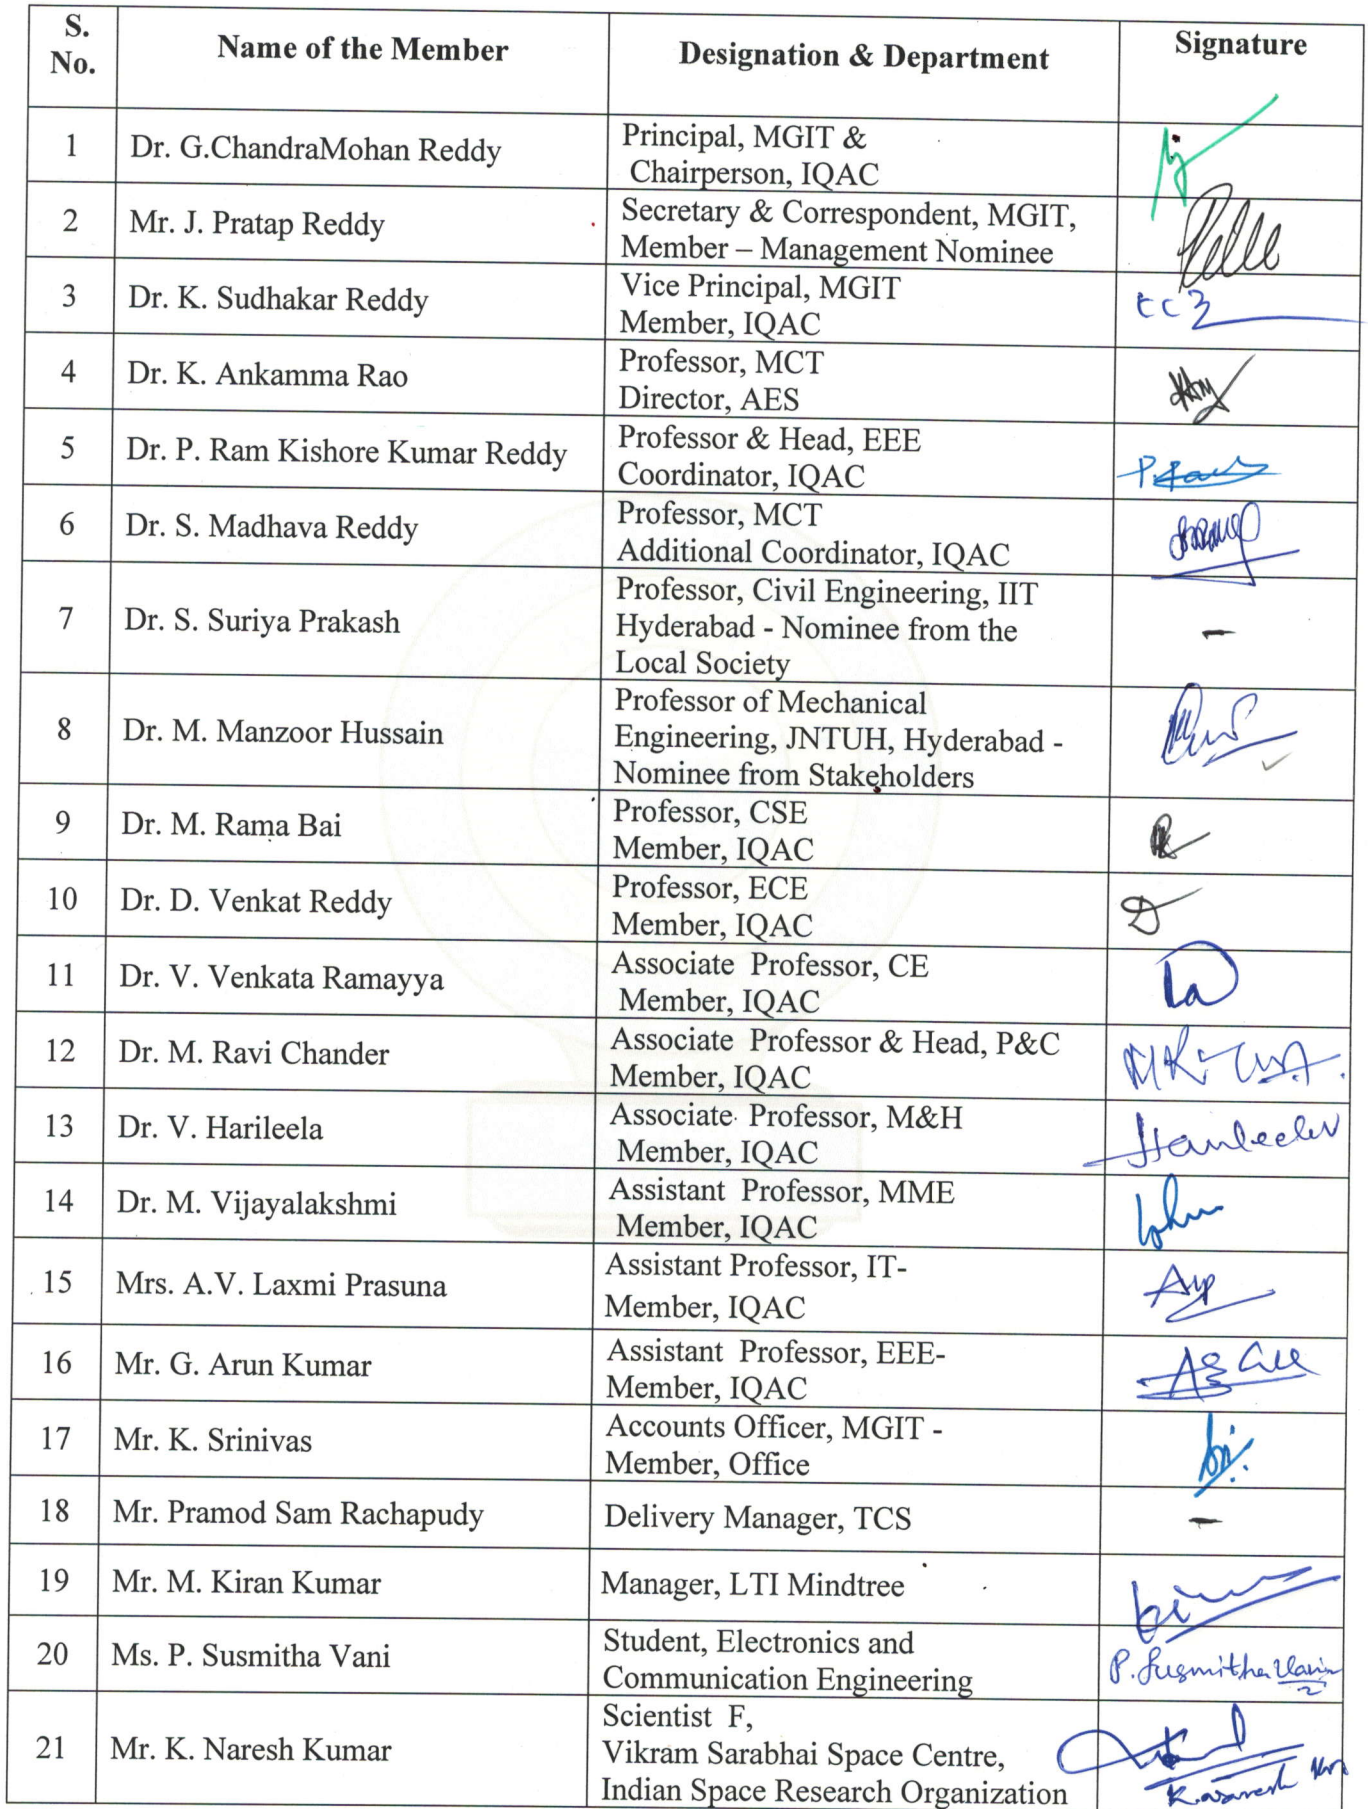 S. No. Name of the Member Designation & Department Signature
1 Dr. G.ChandraMohan Reddy Principal, MGIT &
Chairperson, IQAC
2 Mr. J. Pratap Reddy Secretary & Correspondent, MGIT,
Member – Management Nominee
3 Dr. K. Sudhakar Reddy Vice Principal, MGIT
Member, IQAC
4 Dr. K. Ankamma Rao Professor, MCT
Director, AES
5 Dr. P. Ram Kishore Kumar Reddy Professor & Head, EEE
Coordinator, IQAC
6 Dr. S. Madhava Reddy Professor, MCT
Additional Coordinator, IQAC
7 Dr. S. Suriya Prakash Professor, Civil Engineering, IIT
Hyderabad - Nominee from the –
Local Society
8 Dr. M. Manzoor Hussain Professor of Mechanical
Engineering, JNTUH, Hyderabad -
Nominee from Stakeholders
9 Dr. M. Rama Bai Professor, CSE
Member, IQAC
10 Dr. D. Venkat Reddy Professor, ECE
Member, IQAC
11 Dr. V. Venkata Ramayya Associate Professor, CE
Member, IQAC
12 Dr. M. Ravi Chander Associate Professor & Head, P&C
Member, IQAC
13 Dr. V. Harileela Associate Professor, M&H
Member, IQAC
14 Dr. M. Vijayalakshmi Assistant Professor, MME
Member, IQAC
15 Mrs. A.V. Laxmi Prasuna Assistant Professor, IT-
Member, IQAC
16 Mr. G. Arun Kumar Assistant Professor, EEE-
Member, IQAC
17 Mr. K. Srinivas Accounts Officer, MGIT -
Member, Office
18 Mr. Pramod Sam Rachapudy Delivery Manager, TCS –
19 Mr. M. Kiran Kumar Manager, LTI Mindtree
20 Ms. P. Susmitha Vani Student, Electronics and
Communication Engineering P. Susmitha Vani
21 Mr. K. Naresh Kumar Scientist F,
Vikram Sarabhai Space Centre,
Indian Space Research Organization K. Naresh